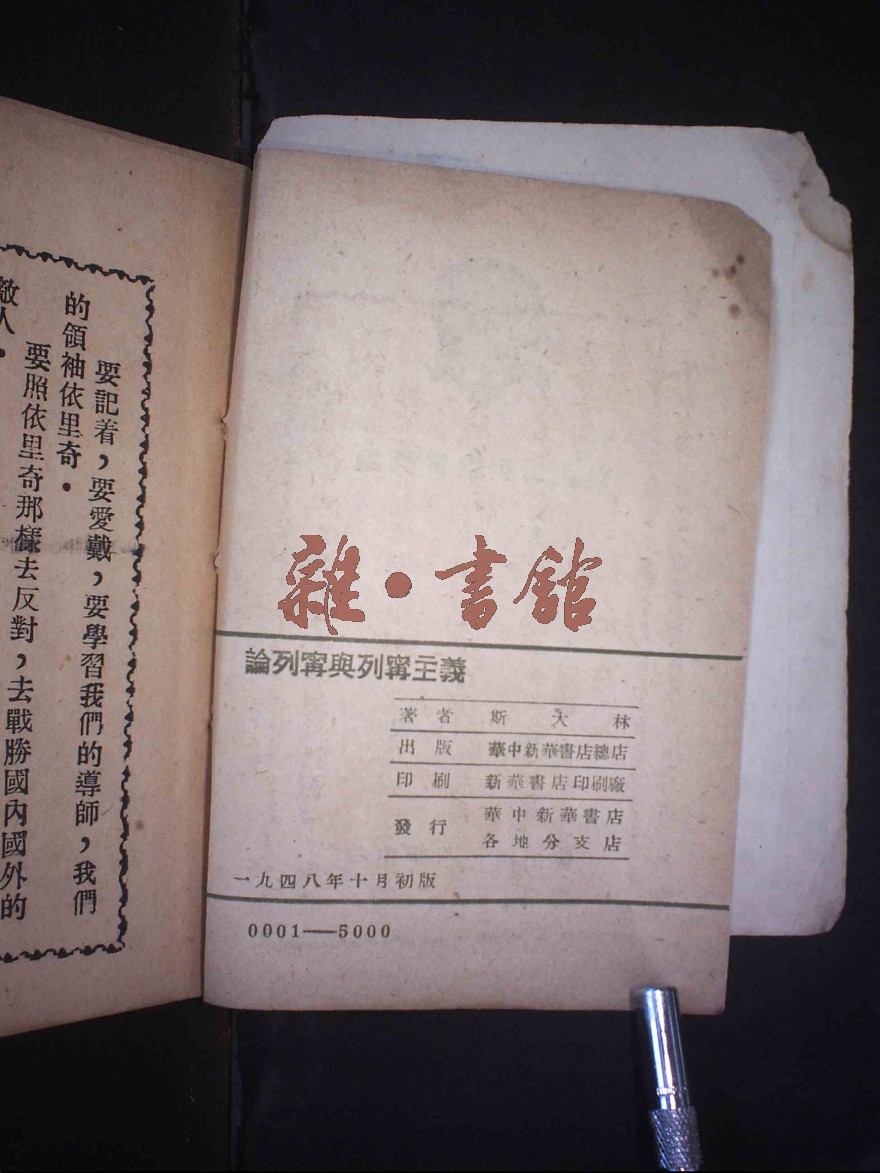 要記着,要愛戴,要學習我們的導師,我們
的領袖依里奇.
要照依里奇那樣去反對,去戰勝國內國外的
敵人.
雜·書館
論列甯與列甯主義
著者 斯大林
出版 華中新華書店總店
印刷 新華書店印刷廠
發行 華中新華書店
各地分支店
一九四八年十月初版
0001—5000